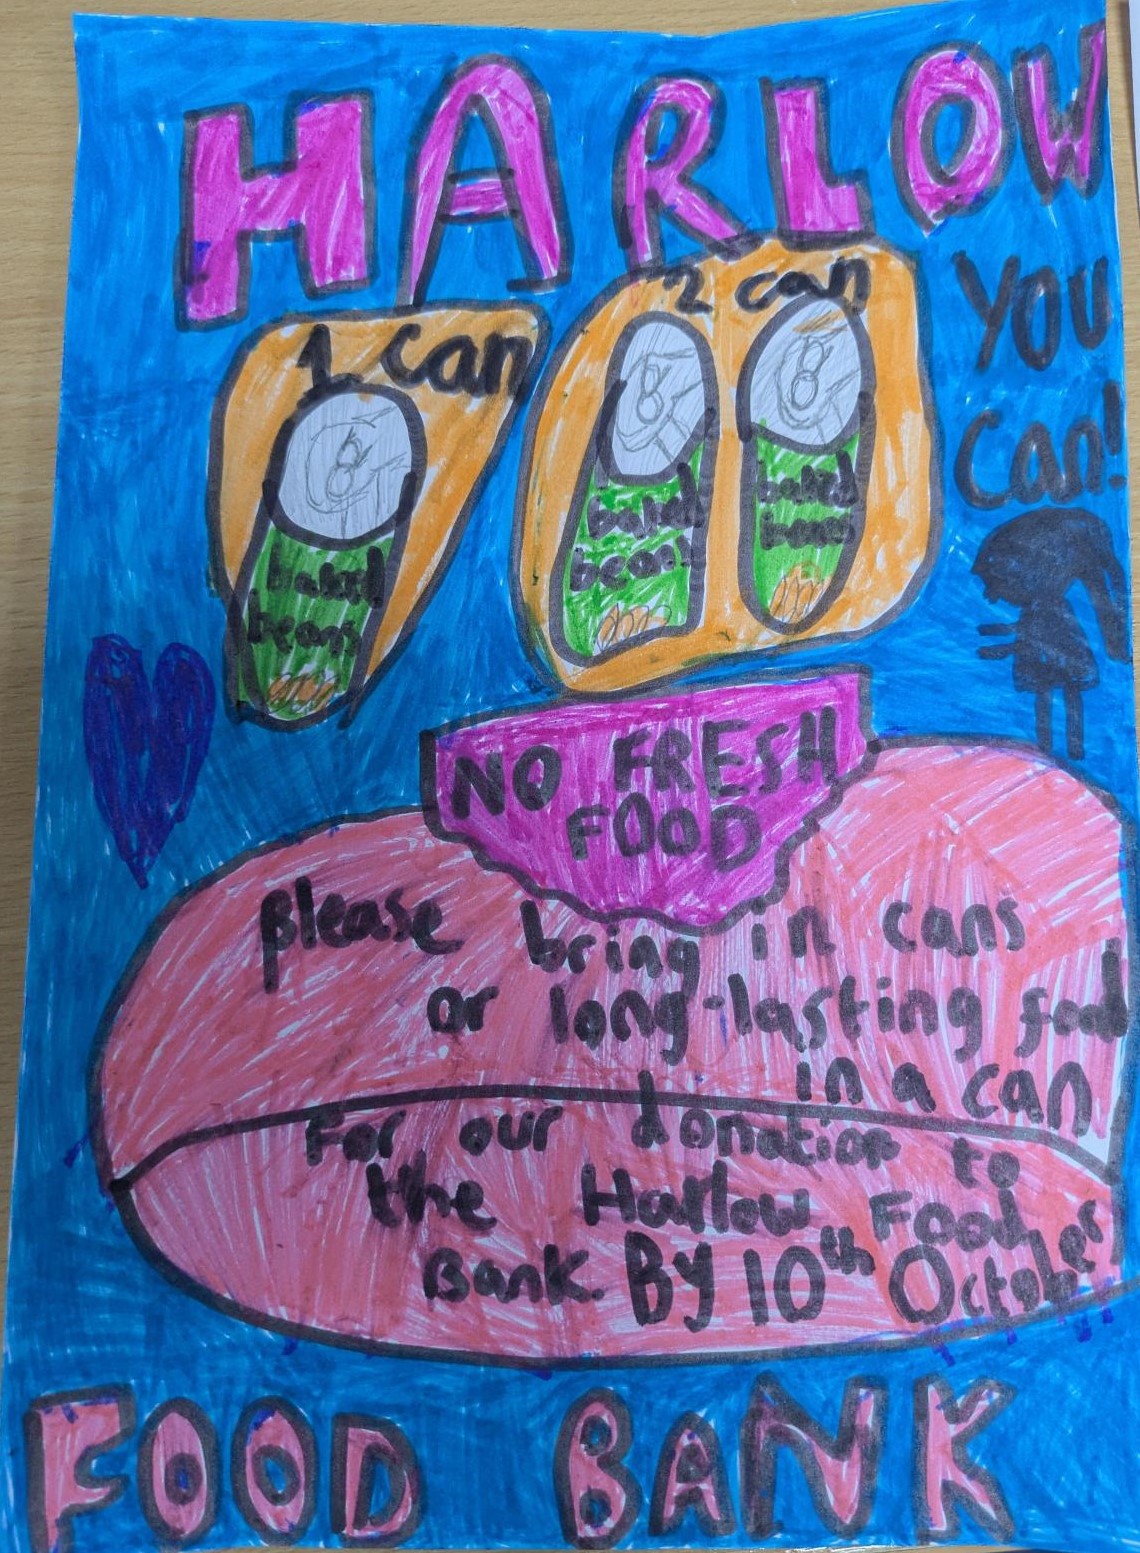 HARLOW
1 can
2 can
YOU
Can!
baked
beans
baked
beans
baked
beans
NO FRESH
FOOD
please bring in cans
or long-lasting food
in a can
For our donation to
the Harlow Food
Bank. By 10th October
FOOD BANK